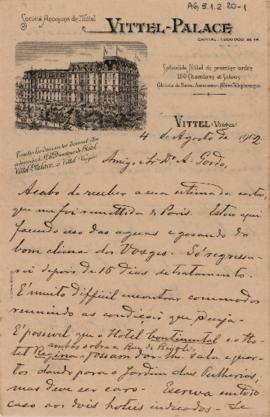 AG 5.1.2.20-1
Société Anonyme de l'Hôtel
VITTEL-PALACE
CAPITAL: 1.200.000 DE FR.
Splendide Hôtel de premier ordre
200 Chambres et Salons
VITTEL (Vosges)
4 de Agosto de 1902
Amigo Sr. Dr. A. Gordo,
Acabo de receber a sua estimada carta,
que me foi remettida de Paris. Estou aqui
fazendo uso das aguas e gosando do
bom clima dos Vosges. Só regressa-
rei depois de 15 dias de tratamento.
É muito difficil encontrar commodos
reunindo as condições que deseja.
É possivel que o Hotel Continental e o Ho-
ambos sobre a Rue de Rivoli
tel Regina possam dar lhe sala e quar-
tos dando para o Jardim das Tulherias,
mas deve ser caro. Escreva n'esse
caso aos dois hoteis indicados. Se